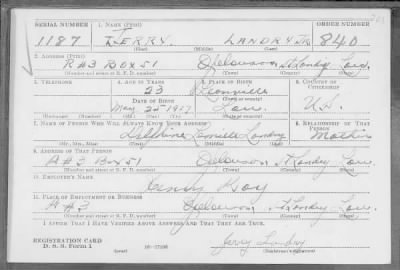 SERIAL NUMBER 1. NAME (Print) ORDER NUMBER
1187 JERRY. LANDRY JR 840
(First) (Middle) (Last)
2. ADDRESS (Print)
R#3 Box 51 Opelousas St Landry Lou.
(Number and street or R. F. D. number) (Town) (County) (State)
3. TELEPHONE 4. AGE IN YEARS 5. PLACE OF BIRTH 6. COUNTRY OF CITIZENSHIP
23 Leonville
DATE OF BIRTH
May 20 1917 Lou. U.S.
(Mo.) (Day) (Yr.) (State or country)
7. NAME OF PERSON WHO WILL ALWAYS KNOW YOUR ADDRESS 8. RELATIONSHIP OF THAT PERSON
Landry Mother
(Mr., Mrs., Miss) (First) (Middle) (Last)
9. ADDRESS OF THAT PERSON
R#3 Box 51 Opelousas St Landry Lou
(Number and street or R. F. D. number) (Town) (County) (State)
10. EMPLOYER'S NAME
11. PLACE OF EMPLOYMENT OR BUSINESS
R#3 Opelousas St Landry Lou.
(Number and street or R. F. D. number) (Town) (County) (State)
I AFFIRM THAT I HAVE VERIFIED ABOVE ANSWERS AND THAT THEY ARE TRUE.
REGISTRATION CARD
D. S. S. Form 1 (over) Jerry Landry
(Registrant's signature)